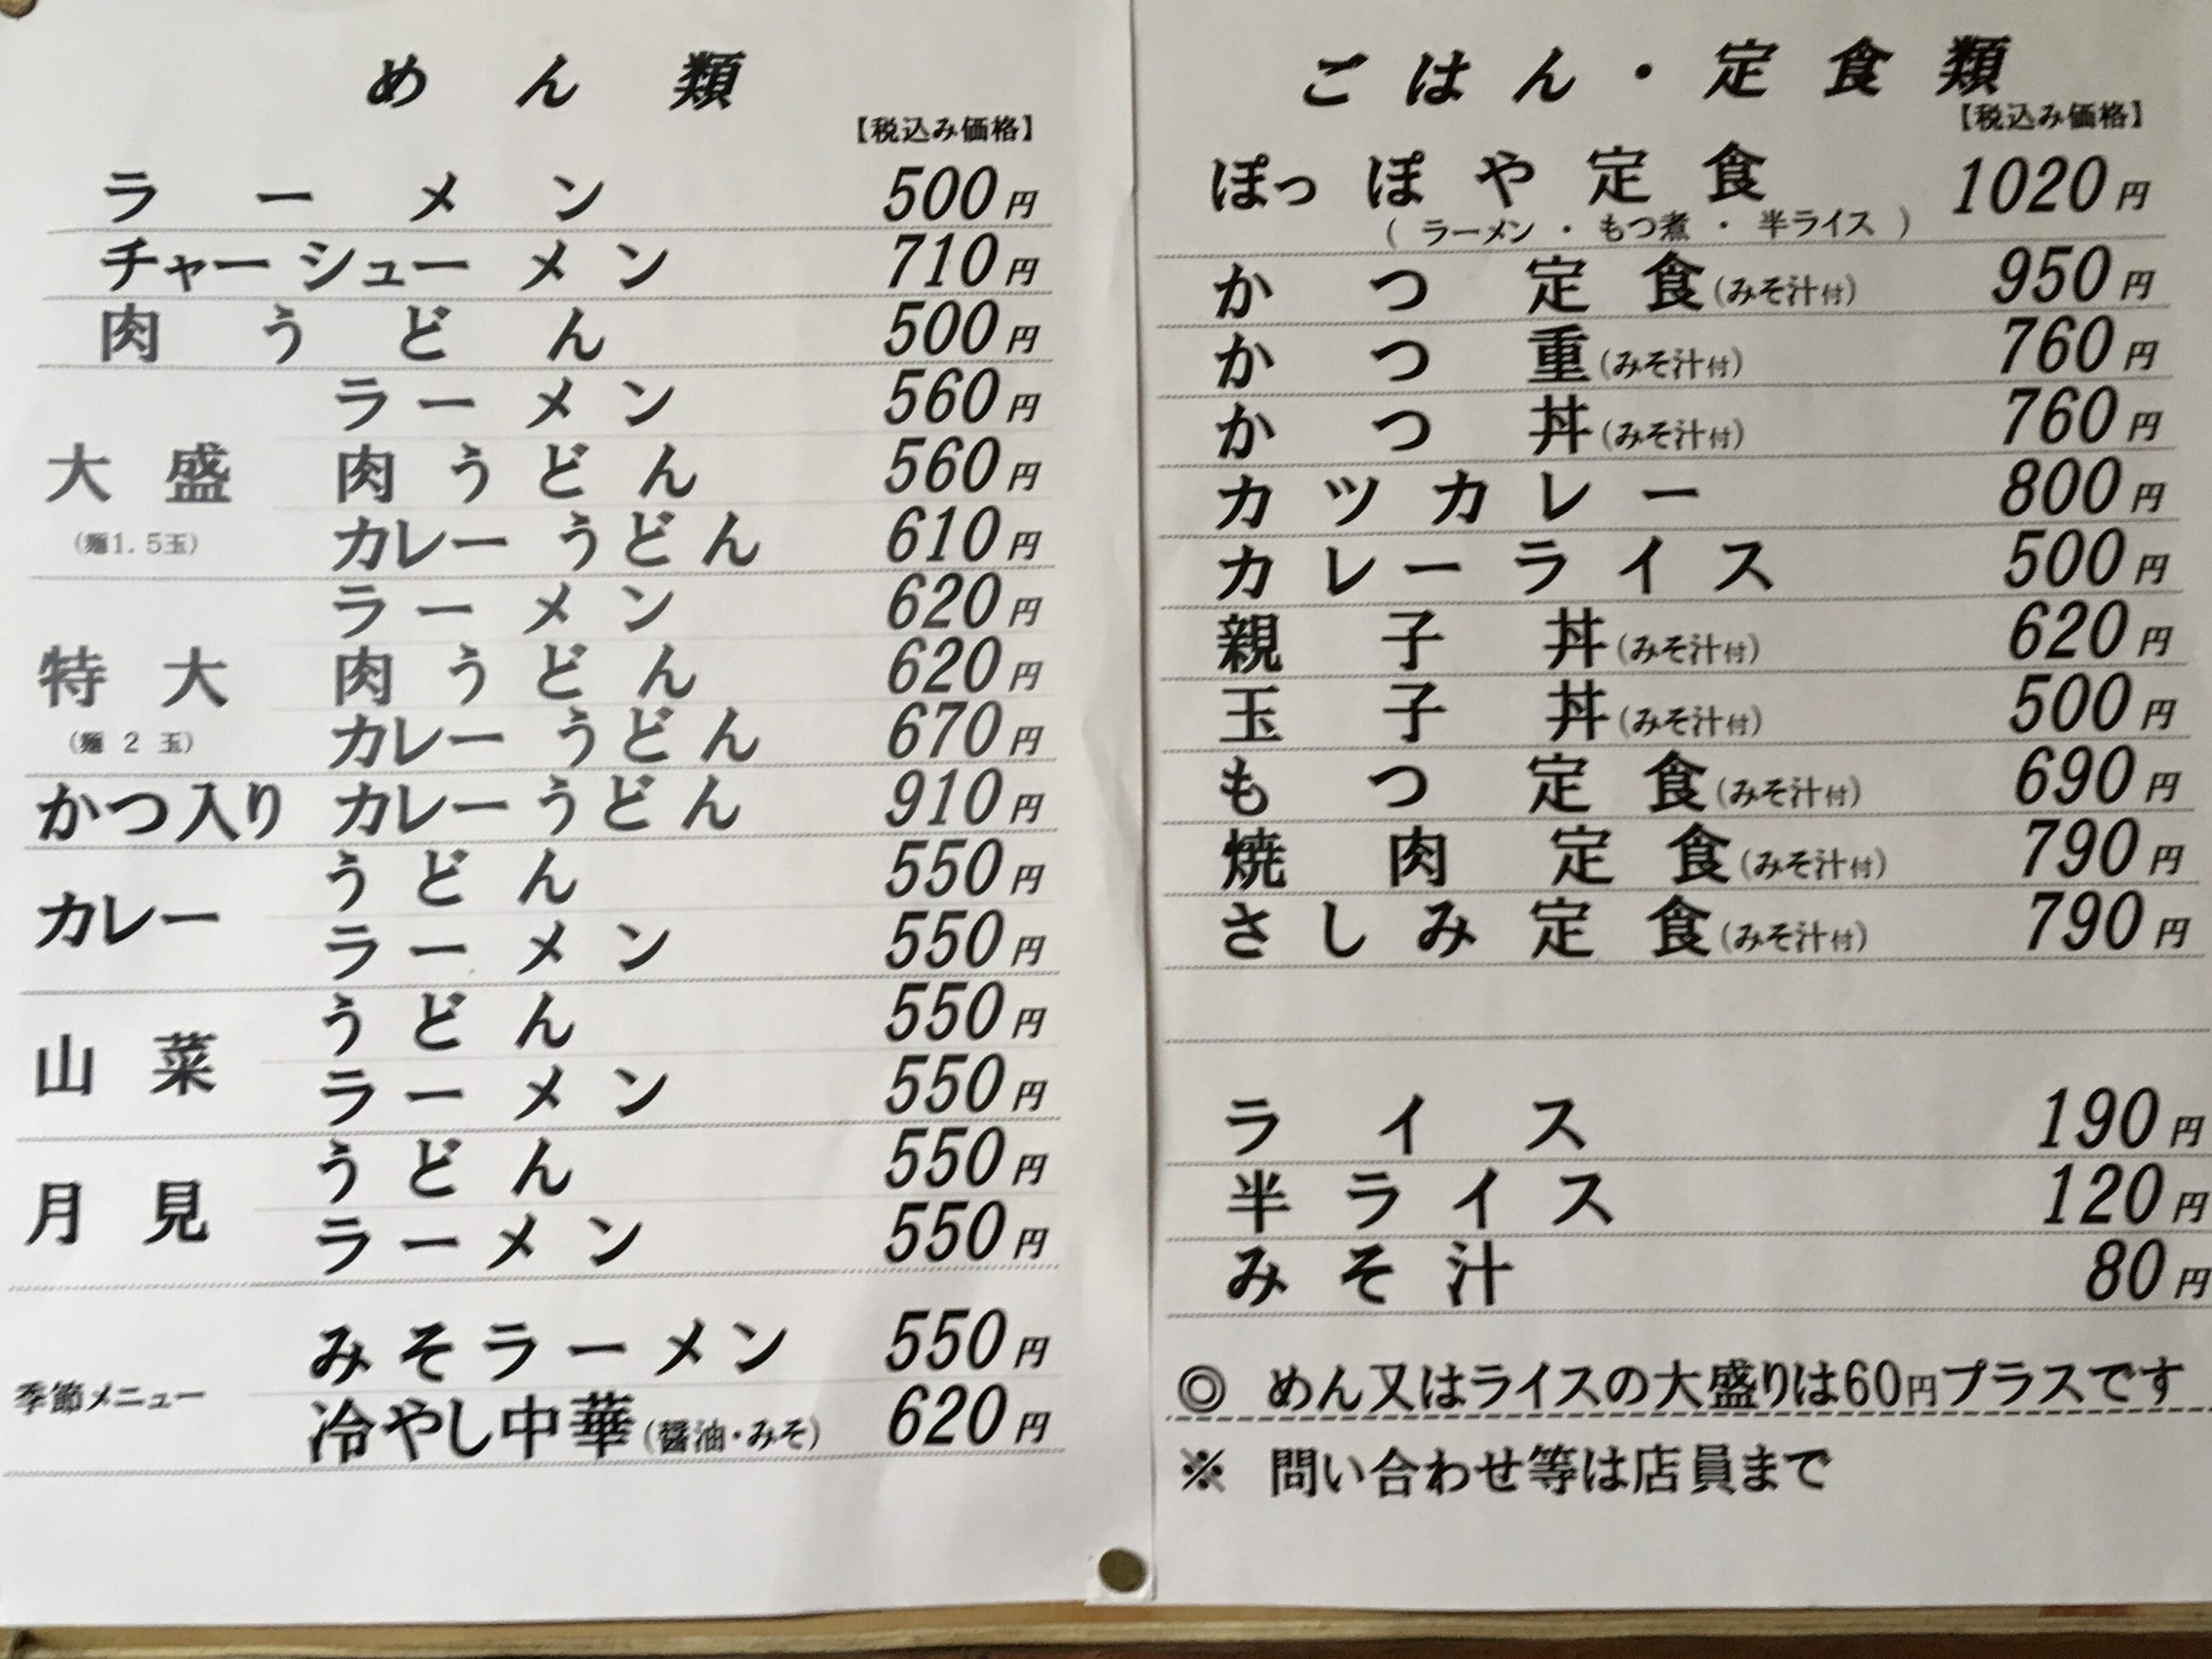 めん類
【税込み価格】
ラーメン 500円
チャーシューメン 710円
肉うどん 500円
大盛 (麺1.5玉)
ラーメン 560円
肉うどん 560円
カレーうどん 610円
特大 (麺2玉)
ラーメン 620円
肉うどん 620円
カレーうどん 670円
かつ入り カレーうどん 910円
カレー
うどん 550円
ラーメン 550円
山菜
うどん 550円
ラーメン 550円
月見
うどん 550円
ラーメン 550円
季節メニュー
みそラーメン 550円
冷やし中華(醤油・みそ) 620円
ごはん・定食類
【税込み価格】
ぽっぽや定食 1020円
(ラーメン・もつ煮・半ライス)
かつ定食(みそ汁付) 950円
かつ重(みそ汁付) 760円
かつ丼(みそ汁付) 760円
カツカレー 800円
カレーライス 500円
親子丼(みそ汁付) 620円
玉子丼(みそ汁付) 500円
もつ定食(みそ汁付) 690円
焼肉定食(みそ汁付) 790円
さしみ定食(みそ汁付) 790円
ライス 190円
半ライス 120円
みそ汁 80円
◎ めん又はライスの大盛りは60円プラスです
※ 問い合わせ等は店員まで